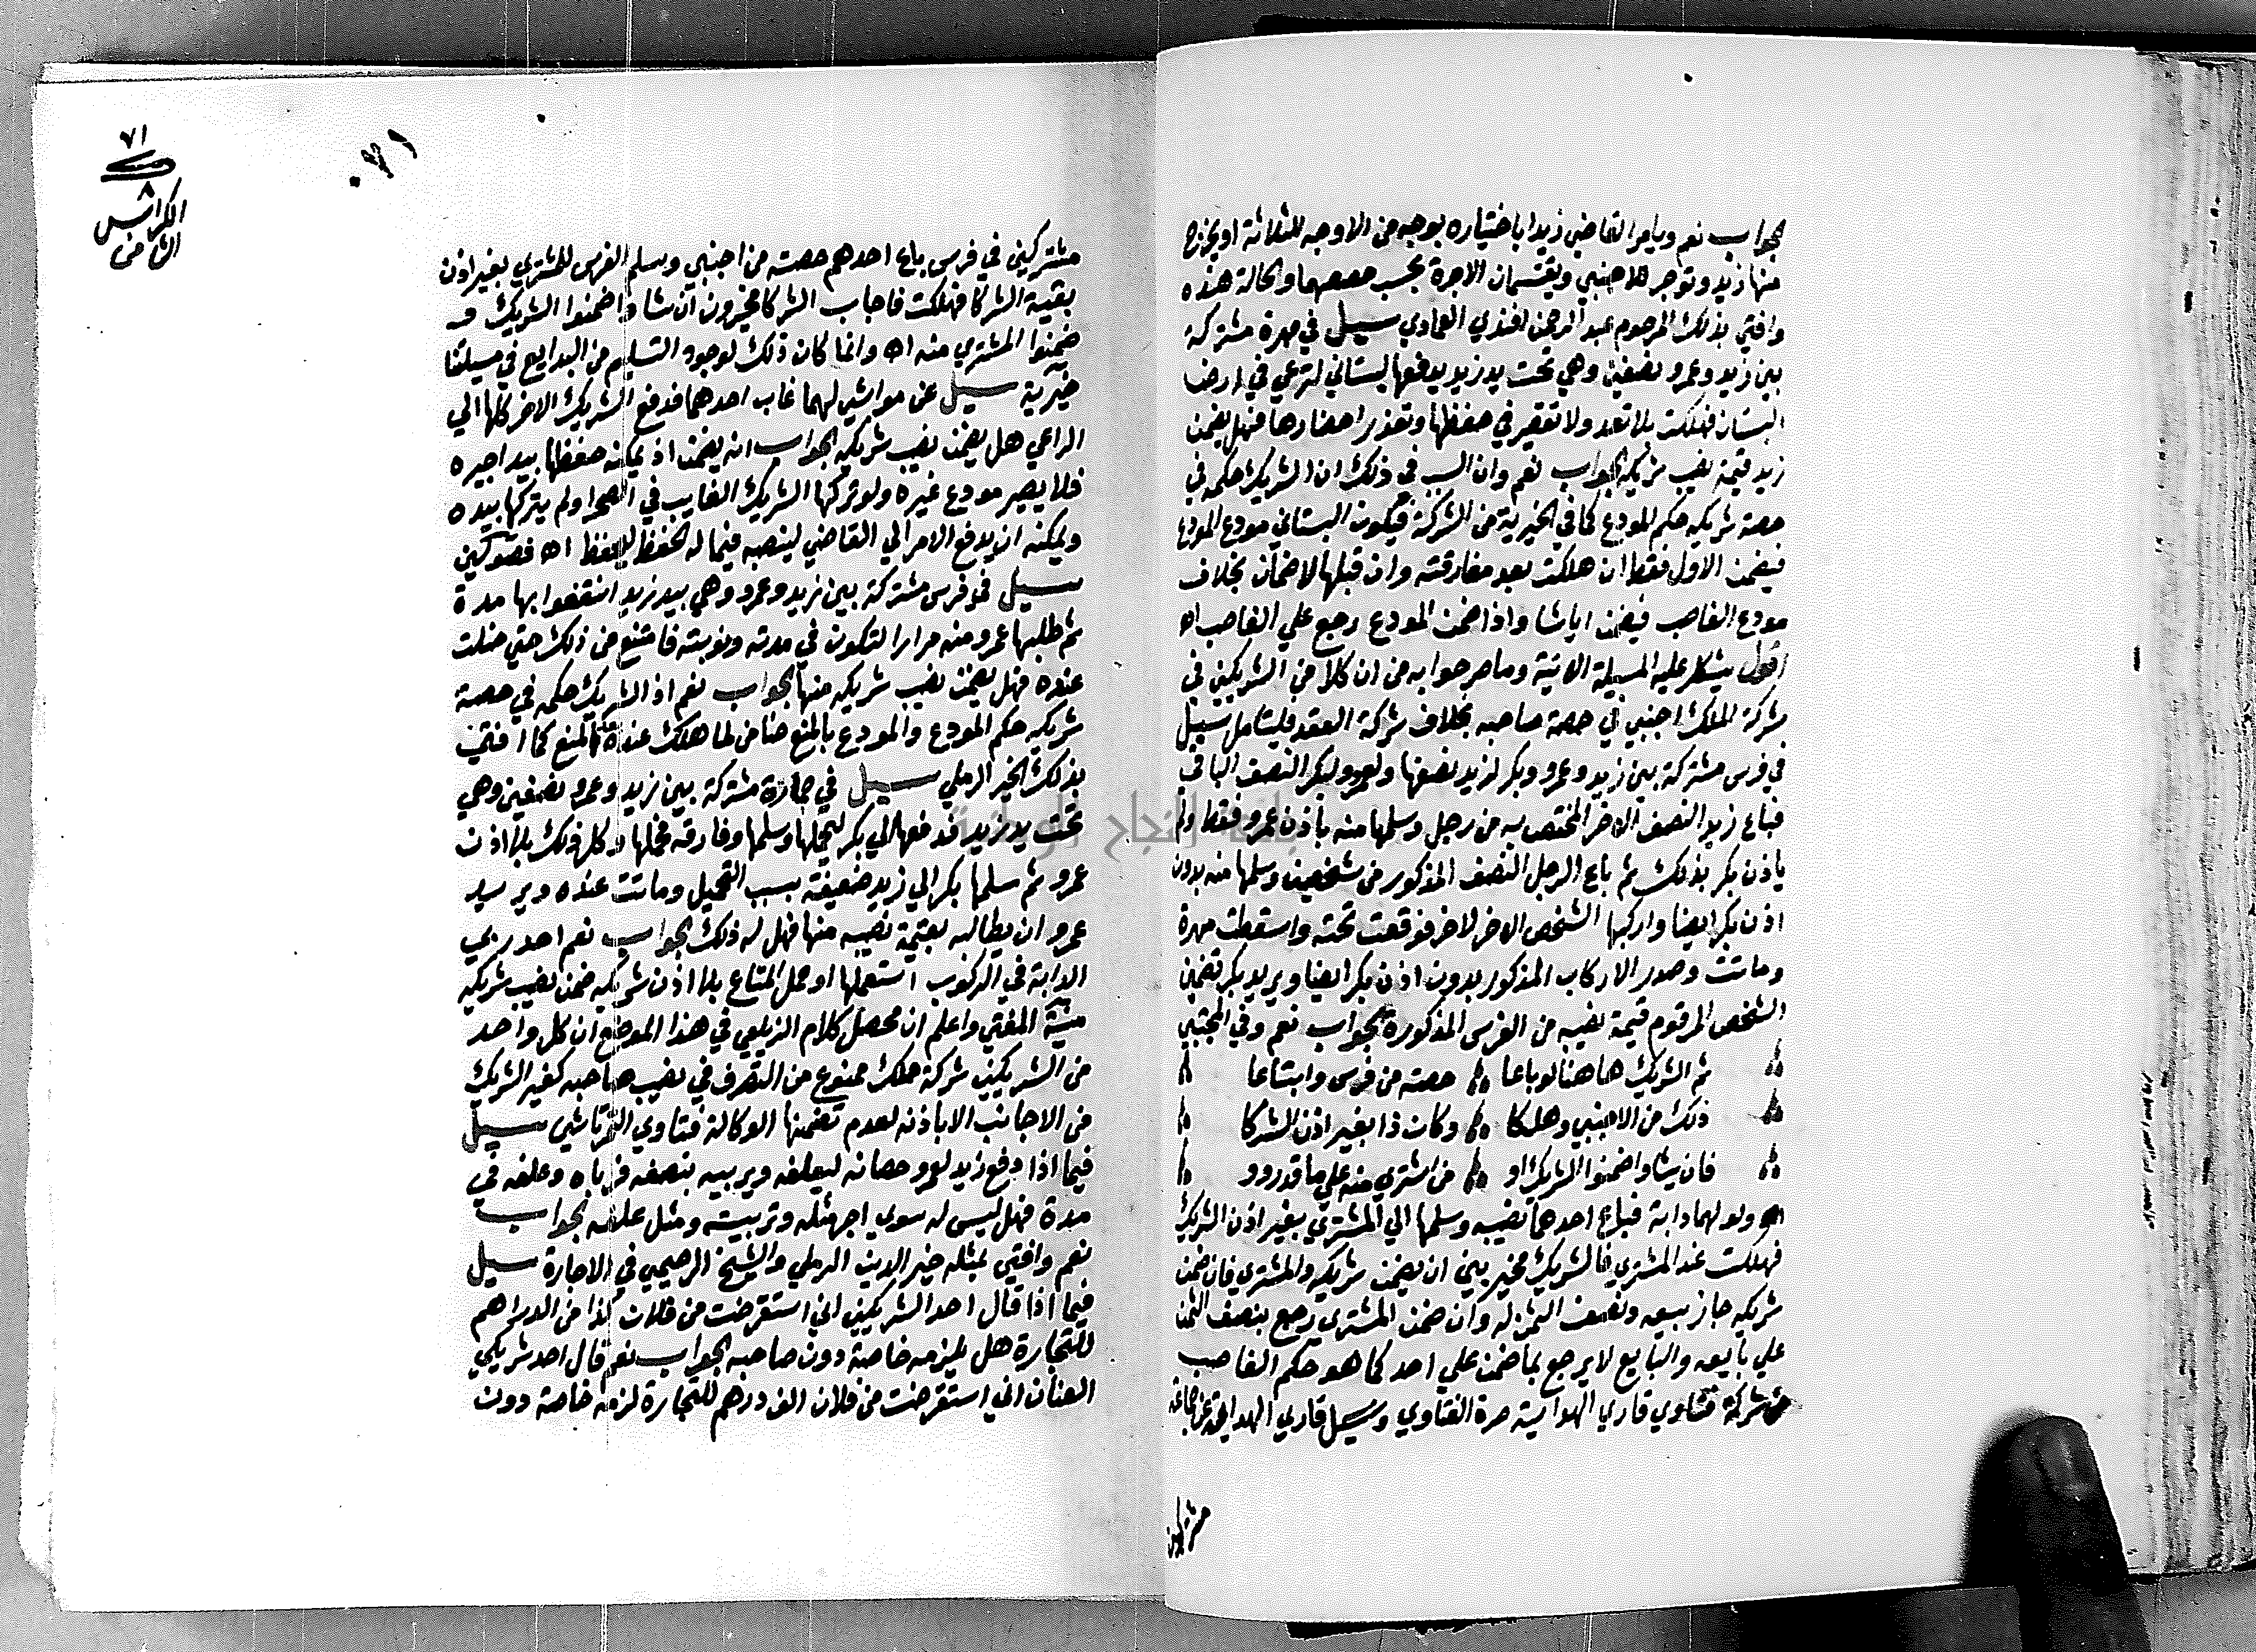 الجواب نعم ويامر القاضي زيدا باختياره بوجه من الاوجه الثلاثة او يخرج
منها زيد وتوجر للاجنبي ويقتسمان الاجرة بحسب حصصهما والحالة هذه
وافتى بذلك المرحوم عبد الرحمن افندي العمادي سيل في مهرة مشتركة
بين زيد وعمرو نصفين وهي تحت يد زيد يدفعها لبستاني لترعي في ارض
البستان فهلكت بلا تعد ولا تقصير في حفظها وتعذر احضارها فهل يضمن
زيد قيمة نصيب شريكه الجواب نعم وان السبب في ذلك ان الشريك حكمه في
حصة شريكه حكم المودع كما في الخيرية من الشركة فيكون البستاني مودع المودع
فيضمن الاول فقط ان هلكت بعد مفارقته وان قبلها لا ضمان بخلاف
مودع الغاصب فيضمن ايا شا واذا ضمن المودع رجع علي الغاصب اه
اقول يشكل عليه المسيلة الاتية وما مر جوابه من ان كلا من الشريكين في
شركة الملك اجنبي في حصة صاحبه بخلاف شركة العقد فليتامل سيل
في فرس مشتركة بين زيد وعمرو وبكر لزيد نصفها ولعمرو وبكر النصف الباقي
فباع زيد النصف الاخر المختص به من رجل وسلمها منه باذن عمرو فقط ولم
ياذن بكر بذلك ثم باع الرجل النصف المذكور من شخصين وسلمها منه بدون
اذن بكر ايضا واركبها الشخص الاخر لاخر فوقعت تحته واسقطت مهرة
وماتت وصدر الاركاب المذكور بدون اذن بكر ايضا ويريد بكر تضمين
الشخص المرقوم قيمة نصيبه من الفرس المذكورة الجواب نعم وفي المجتبي
ثم الشريك هاهنا لو باعا حصته من فرس وابتاعا
ذلك من الاجنبي وهلكا وكان ذا بغير اذن الشركا
فان يشا واضمنوا الشريك او من اشتري منه علي ما قدروو
اه ولو لهما دابة فباع احدهما نصيبه وسلمها الي المشتري بغير اذن الشريك
فهلكت عند المشتري فالشريك مخير بين ان يضمن شريكه والمشتري فان ضمن
شريكه جاز بيعه ونصف الثمن له وان ضمن المشتري رجع بنصف الثمن
علي بايعه والبايع لا يرجع بما ضمن علي احد كما هو حكم الغاصب
من شركة فتاوي قاري الهداية صرة الفتاوي وسيل قاري الهداية عن جماعة
مشتركين
٧١
الكراس
الثامن
مشتركين في فرس باع احدهم حصته من اجنبي وسلم الفرس للمشتري بغير اذن
بقية الشركا فهلكت فاجاب الشركا مخيرون ان شا واضمنوا الشريك و
ضمنوا المشتري منه اه وانما كان ذلك لوجود التسليم من البدايع في مسيلتنا
خيرية سيل عن مواشي لهما غاب احدهما فدفع الشريك الاخر كلها الي
الراعي هل يضمن نصيب شريكه الجواب انه يضمن اذ يمكنه حفظها بيد اجيره
فلا يصير مودع غيره ولو تركها الشريك الغايب في الصحرا ولم يتركها بيده
ويمكنه ان يدفع الامر الي القاضي لينصبه فيما له الحفظ للحفظ اه فصولين
سيل في فرس مشتركة بين زيد وعمرو وهي بيد زيد انتفعوا بها مدة
ثم طلبها عمرو منه مرارا لتكون في مدته ونوبته فامتنع من ذلك حتي ضلت
عنده فهل يضمن نصيب شريكه منها الجواب نعم اذ الشريك حكمه في حصة
شريكه حكم المودع والمودع بالمنع ضامن لما هلك عنده بالمنع كما افتى
بذلك الخير الرملي سيل في حمارة مشتركة بين زيد وعمرو نصفين وهي
تحت يد زيد فدفعها الي بكر ليحملها وسلمها وفارقه فحملها وكل ذلك بلا اذن
عمرو ثم سلمها بكر الي زيد ضعيفة بسبب التحميل وماتت عنده ويريد
عمرو ان يطالبه بقيمة نصيبه منها فهل له ذلك الجواب نعم احد ربي
الدابة في الركوب استعملها او حمل المتاع بلا اذن شريكه ضمن نصيب شريكه
منية المفتي واعلم ان محصل كلام الزيلعي في هذا الموضع ان كل واحد
من الشريكين شركة ملك ممنوع من التصرف في نصيب صاحبه كغير الشريك
من الاجانب الا باذنه لعدم تضمنها الوكالة فتاوي التمرتاشي سيل
فيما اذا دفع زيد لعمرو حصانه ليعلفه ويربيه بنصفه فرباه وعلفه في
مدة فهل ليس له سوي اجر مثله وتربيته ومثل علفه الجواب
نعم وافتي بمثله خير الدين الرملي والشيخ الرحيمي في الاجارة سيل
فيما اذا قال احد الشريكين اني استقرضت من فلان كذا من الدراهم
للتجارة هل يلزمه خاصة دون صاحبه الجواب نعم قال احد شريكي
العنان اني استقرضت من فلان الف درهم للتجارة لزمه خاصة دون